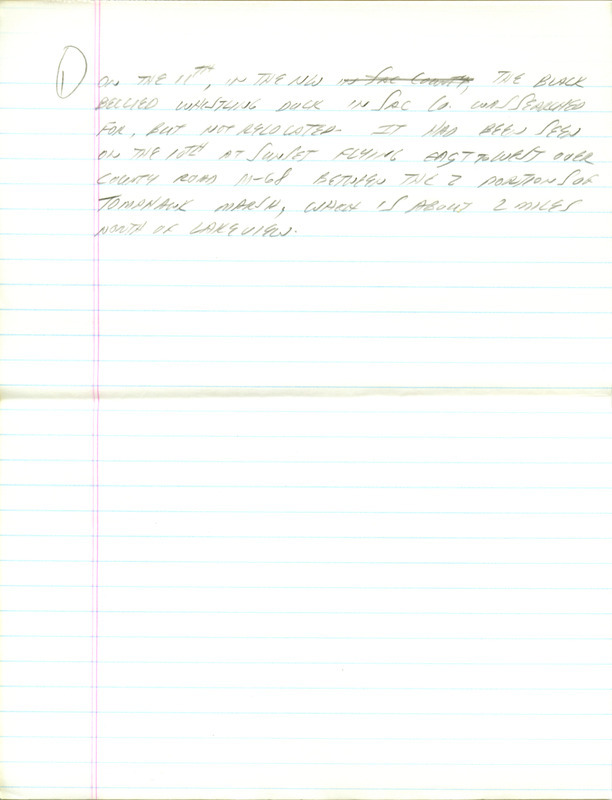 1 ON THE 11TH, IN THE NW IN SAC COUNTY, THE BLACK
BELLIED WHISTLING DUCK IN SAC CO. WAS SEARCHED
FOR, BUT NOT RELOCATED. IT HAD BEEN SEEN
ON THE 10TH AT SUNSET FLYING EAST TO WEST OVER
COUNTY ROAD M-68 BETWEEN THE 2 PORTIONS OF
TOMAHAWK MARSH, WHICH IS ABOUT 2 MILES
NORTH OF LAKEVIEW.